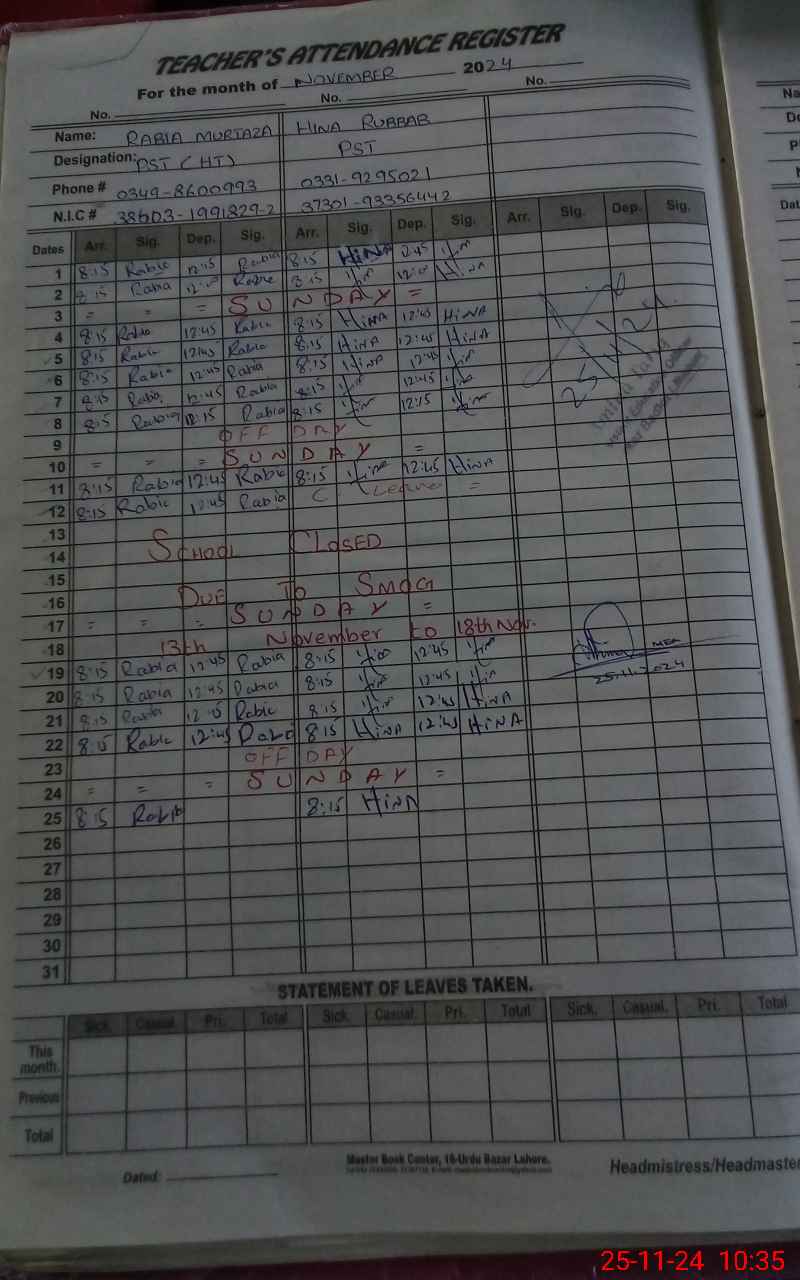 TEACHER'S ATTENDANCE REGISTER
For the month of NOVEMBER 2024
No. No. No.
Name: RABIA MURTAZA HINA RUBBAB
Designation: PST (HT) PST
Phone # 0349-8600993 0331-9295021
N.I.C # 38603-1991829-2 37301-93356442
Dates Arr. Sig. Dep. Sig. Arr. Sig. Dep. Sig. Arr. Sig. Dep. Sig.
1 8:15 Rabia 12:15 Rabia 8:15 HINA 12:45
2 8:15 Rabia Rabia 8:15 HINA
3 = = = SUNDAY =
4 8:15 Rabia 12:45 Rabia 8:15 HINA 12:45 HINA
5 8:15 Rabia 12:45 Rabia 8:15 HINA 12:45 HINA
6 8:15 Rabia 12:45 Rabia 8:15 HINA 12:45
7 8:15 Rabia 12:45 Rabia 8:15 12:45
8 8:15 Rabia 12:15 Rabia 8:15 12:15
9 OFF DAY
10 = = = SUNDAY =
11 8:15 Rabia 12:45 Rabia 8:15 12:45 HINA
12 8:15 Rabia 12:45 Rabia Leave =
13
14 SCHOOL CLOSED
15
16 DUE TO SMOG
17 = = = SUNDAY =
18 13th November to 18th Nov.
19 8:15 Rabia 12:45 Rabia 8:15 12:45
20 8:15 Rabia 12:45 Rabia 8:15 12:45
21 8:15 Rabia Rabia 8:15 12:45 HINA
22 8:15 Rabia 12:45 8:15 HINA 12:45 HINA
23 OFF DAY
24 = = = SUNDAY =
25 8:15 Rabia 8:15 HINA
26
27
28
29
30
31
MEA
25.11.2024
STATEMENT OF LEAVES TAKEN.
Sick. Casual. Pri. Total Sick. Casual. Pri. Total Sick. Casual. Pri. Total
This month.
Previous
Total
Master Book Center, 16-Urdu Bazar Lahore.
Dated: Headmistress/Headmaster
25-11-24 10:35